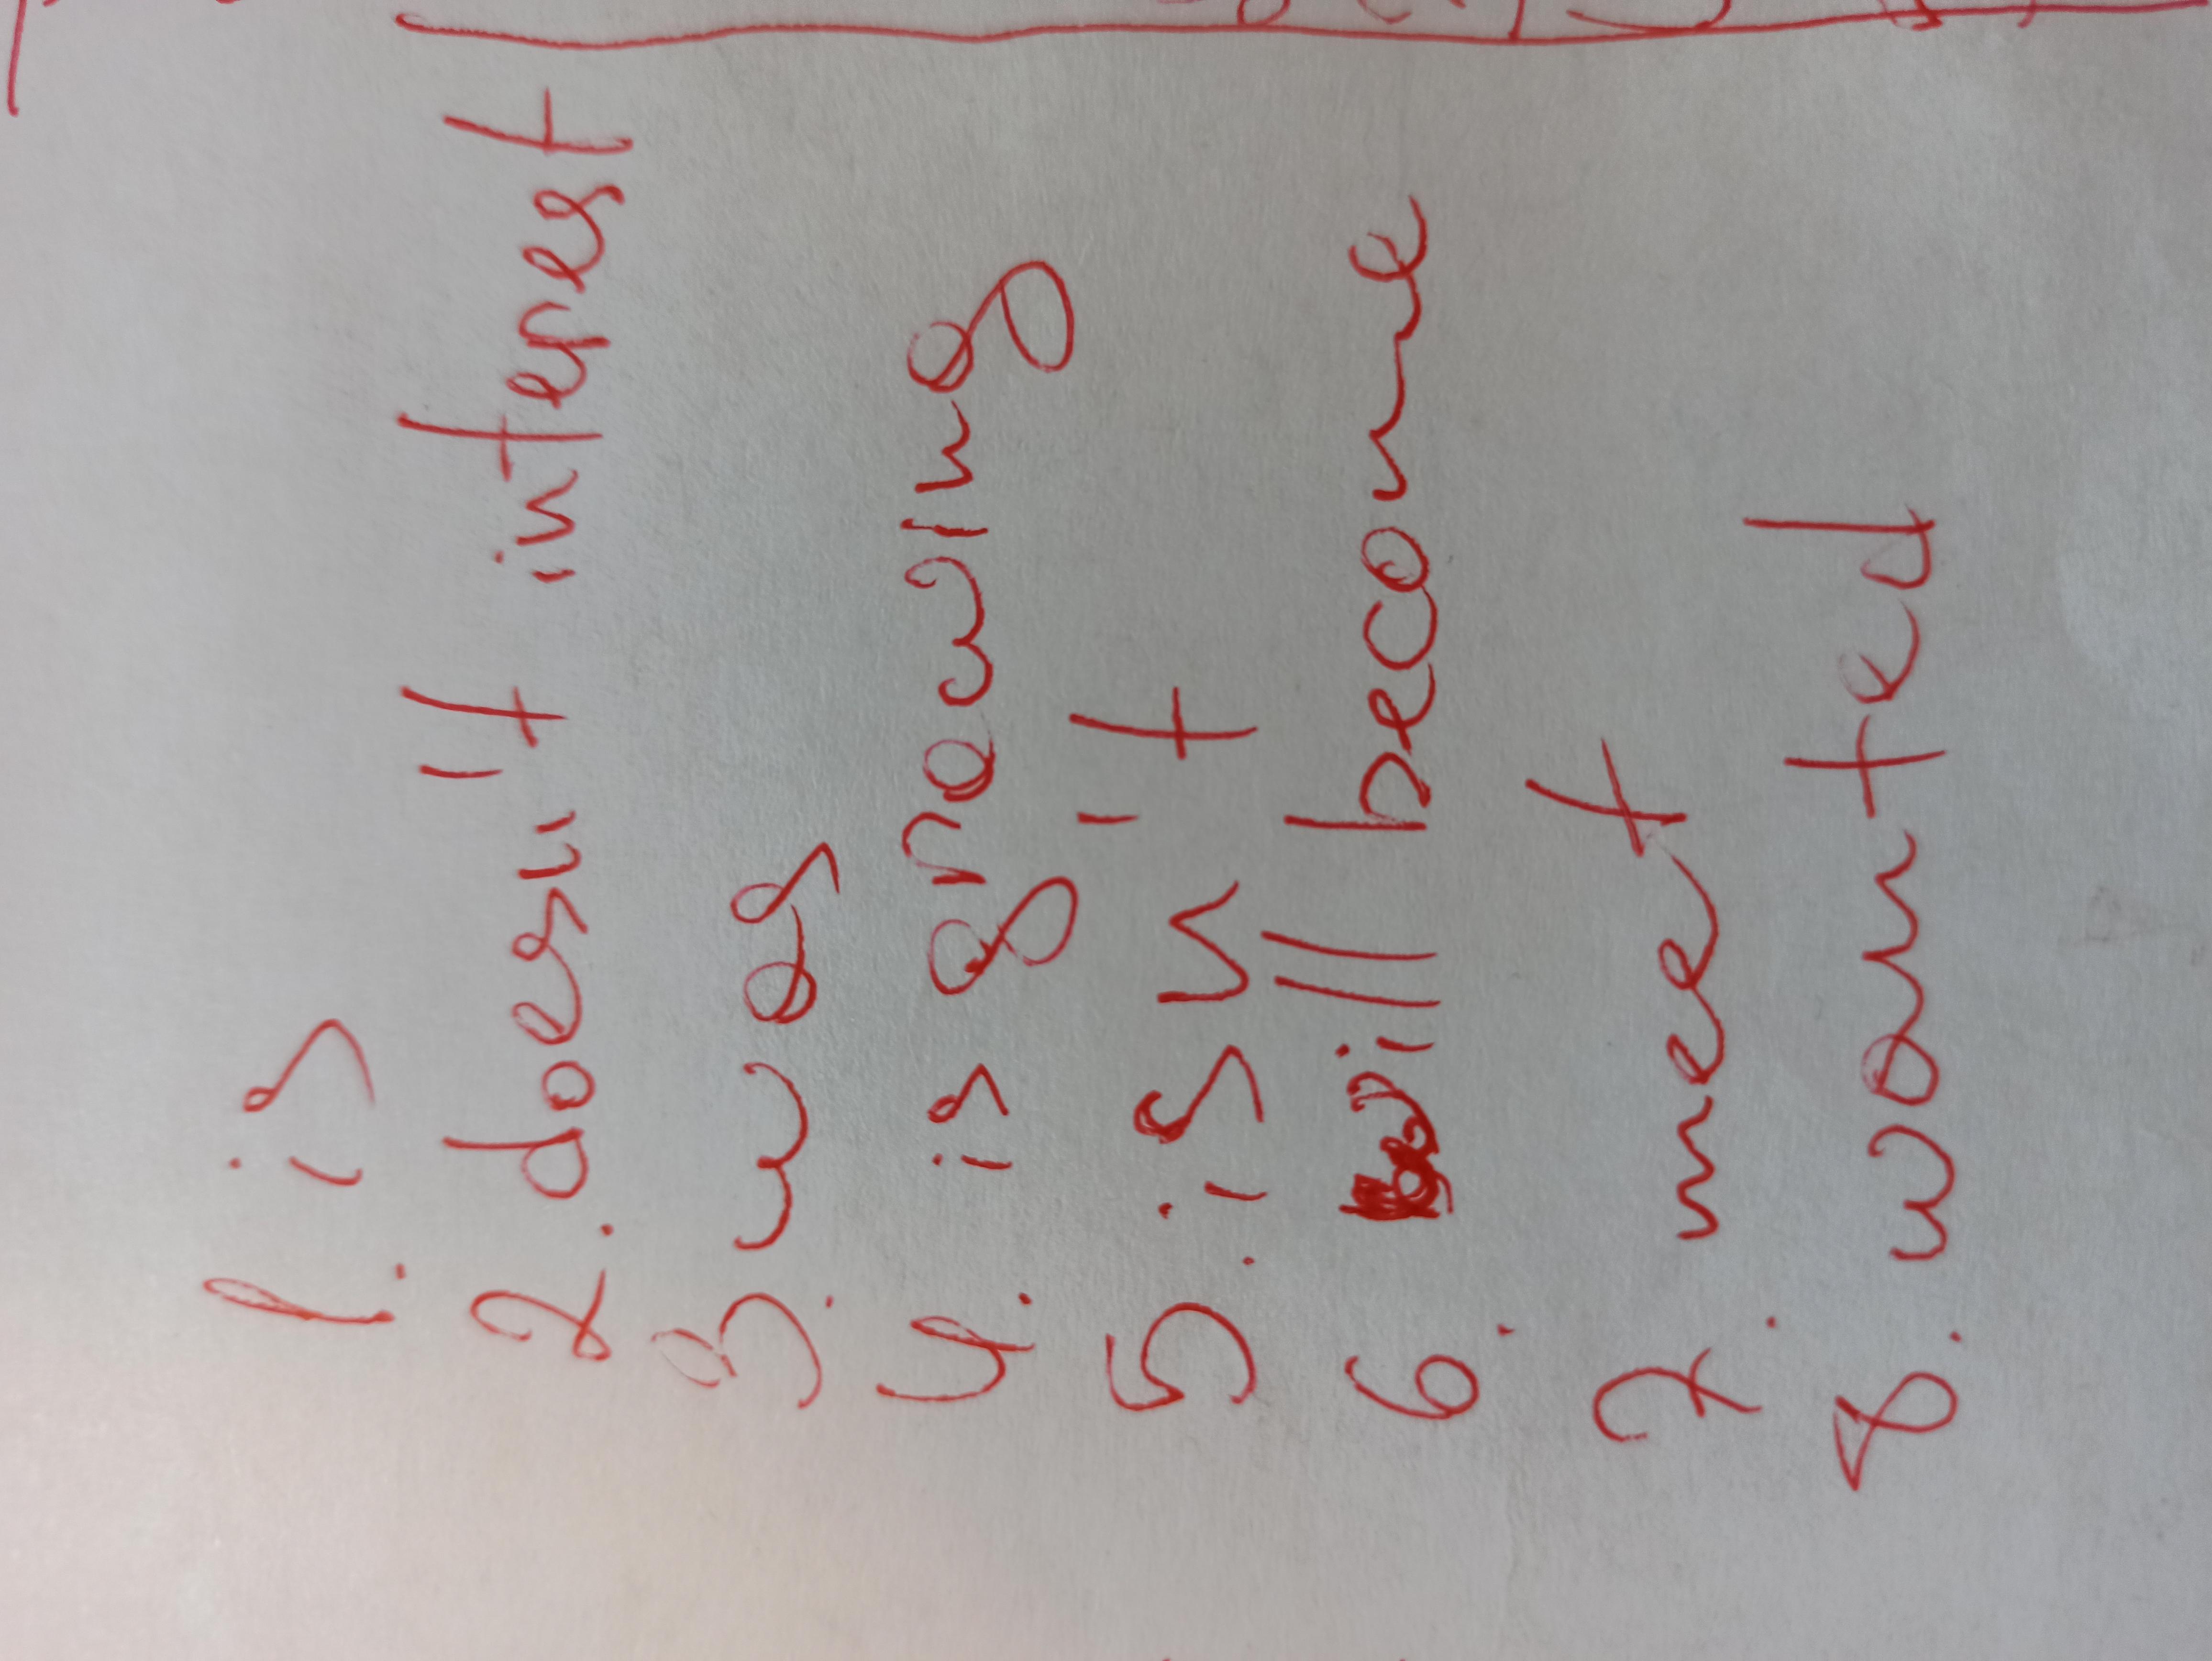 1. is
2. doesn't interest
3. was
4. is grewing
5. isn't
6. will become
7. meet
8. wanted